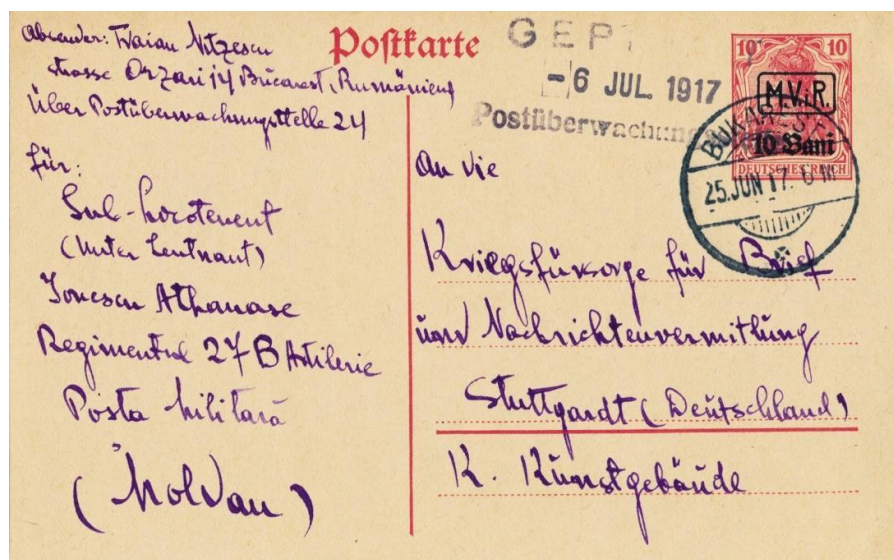 Absender: Traian Nitzescu
strasse Orzari 14 Bucarest, Rumänien
Über Postüberwachungsttelle 24
für:
Sub-locotenent
(Unter Leutnant)
Ionescu Athanase
Regimentul 27 B Artilerie
Posta Militară
(Moldau)
Postkarte
GEP
-6 JUL. 1917
Postüberwachungs
10 10
M.V.i.R.
10 Bani
DEUTSCHES REICH
BUKAREST
25.JUN 17. 6
An die
Kriegsfürsorge für Brief
und Nachrichtenvermitlung
Stuttgardt (Deutschland)
K. Kunstgebäude